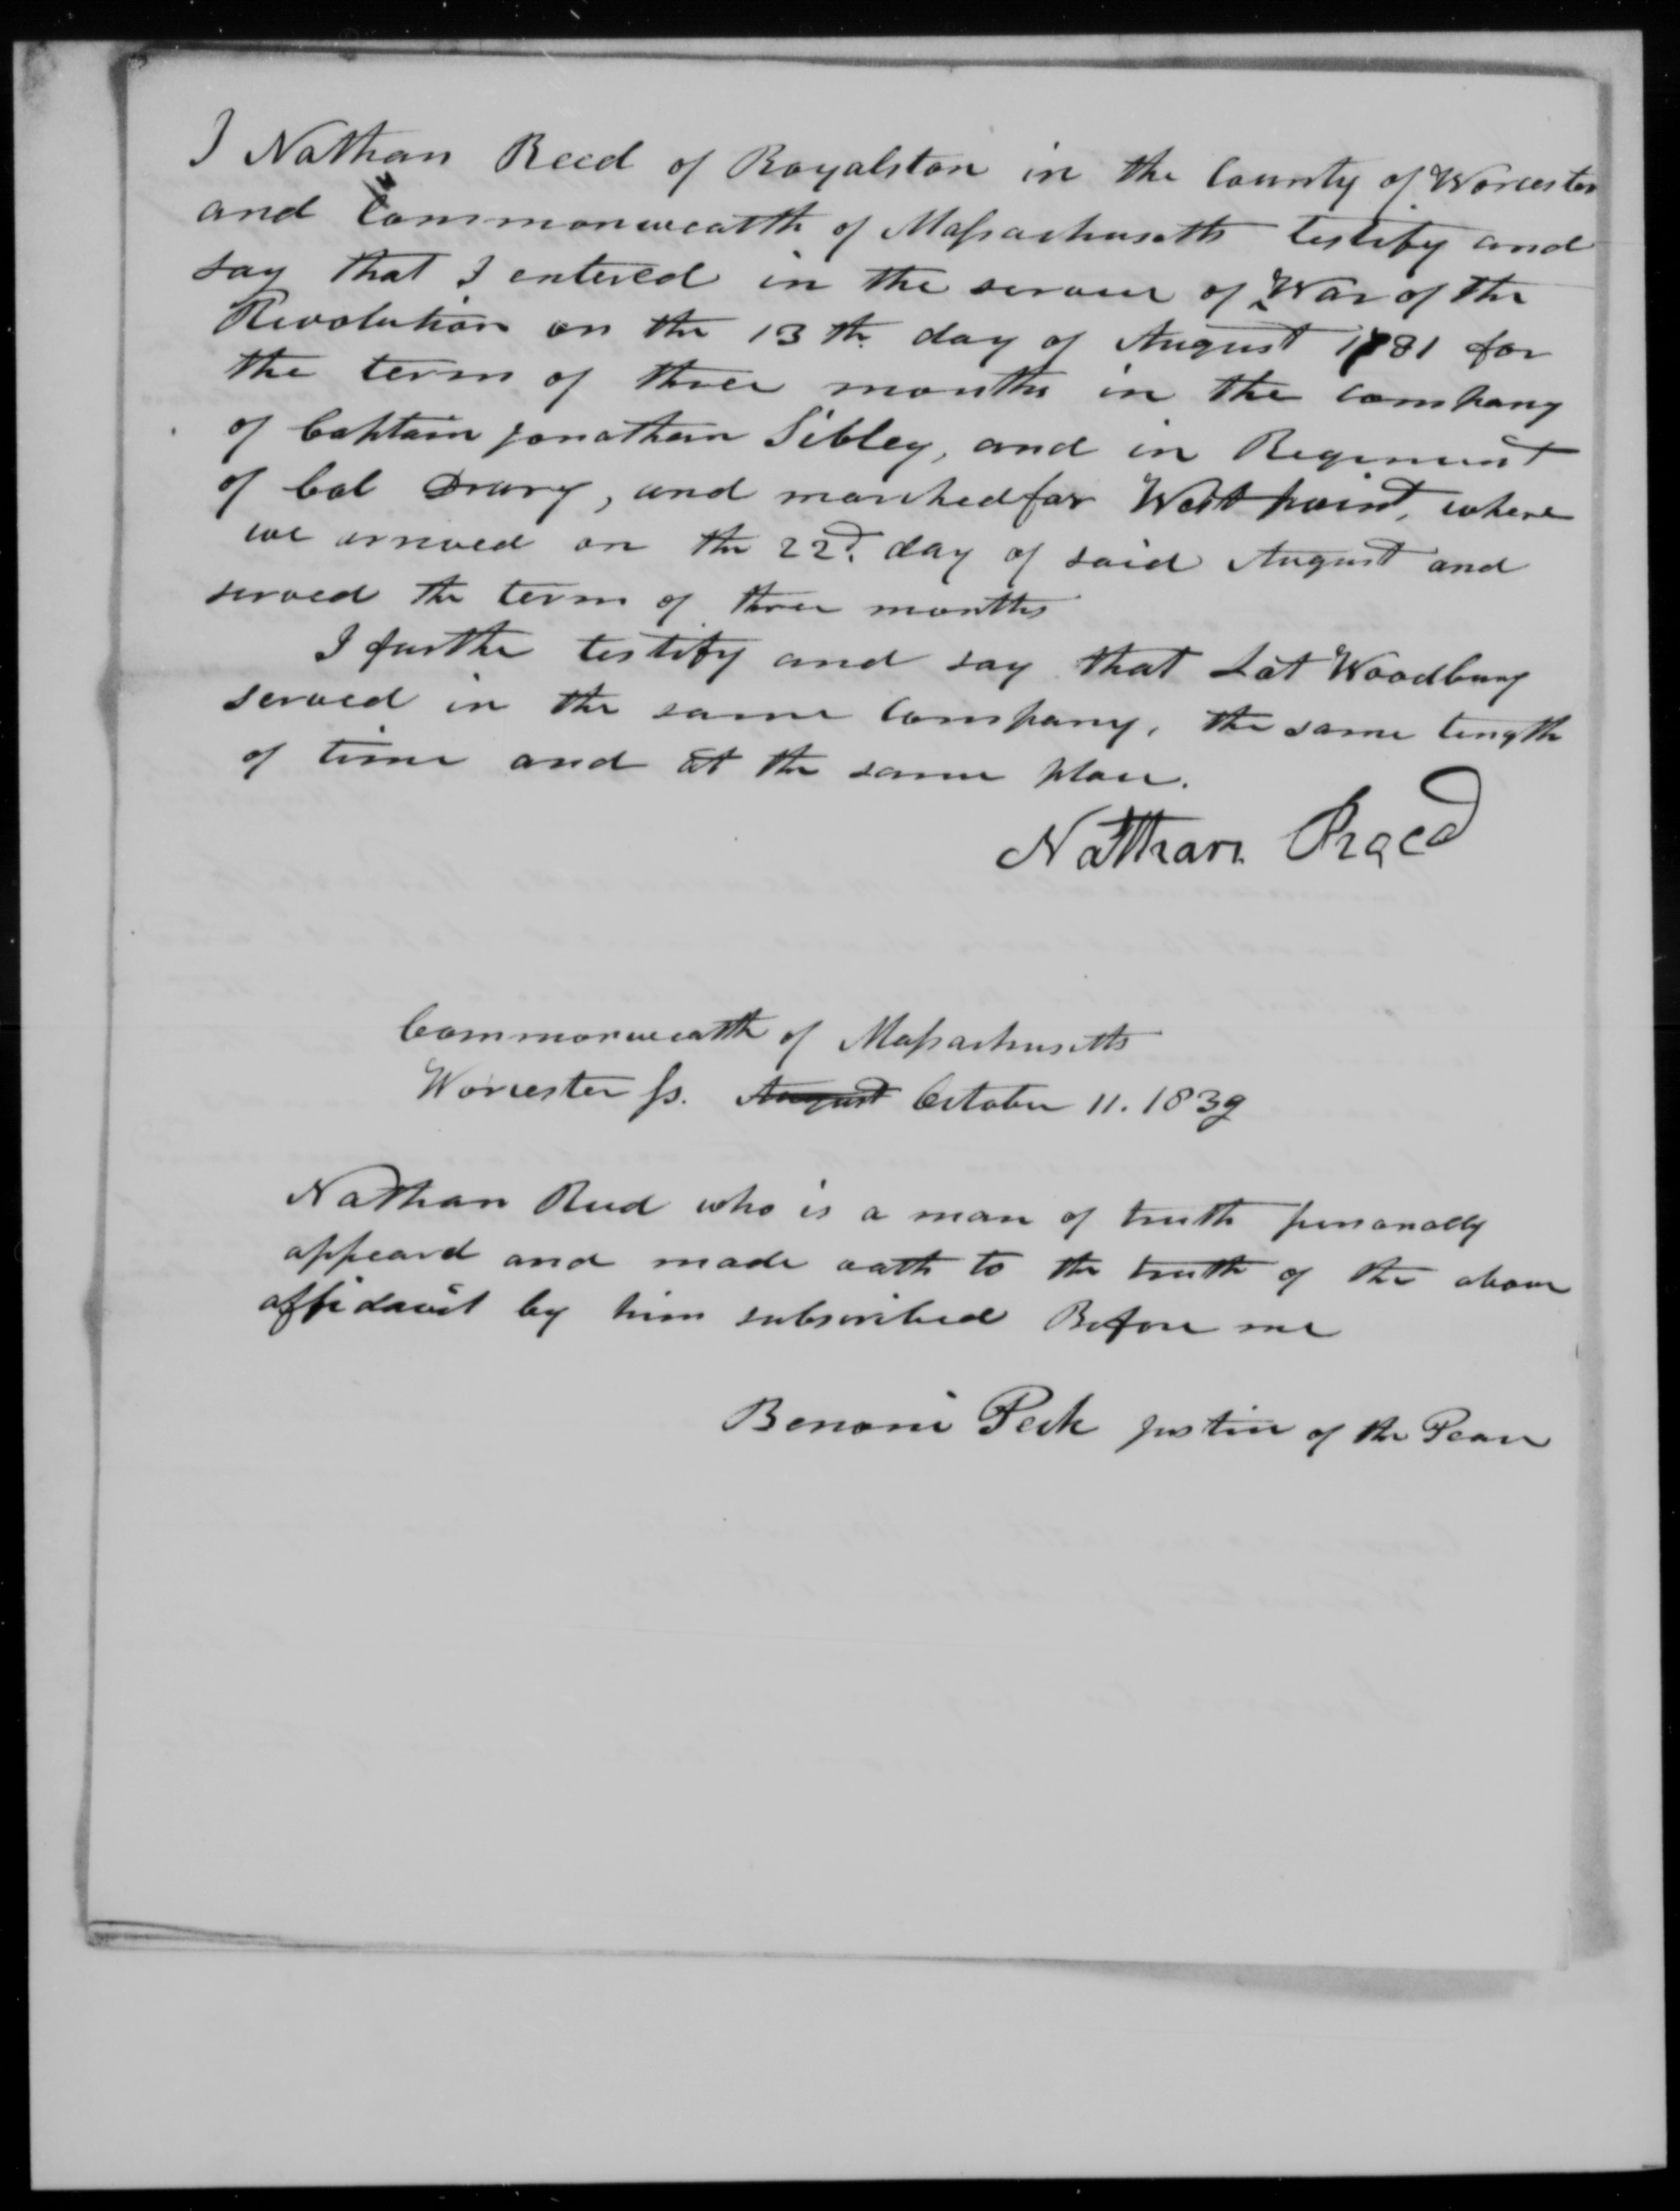 I Nathan Reed of Royalston in the County of Worcester
and Commonwealth of Massachusetts testify and
say that I entered in the service of War of the
Revolution on the 13th day of August 1781 for
the term of three months in the company
of Captain Jonathan Sibley, and in Regiment
of Col Drury, and marched for West point, where
we arrived on the 22d. day of said August and
served the term of three months
I further testify and say that Lot Woodbury
served in the same Company, the same length
of time and at the same place.
Nathan Reed
Commonwealth of Massachusetts
Worcester ss. August October 11. 1839
Nathan Reed who is a man of truth personally
appeard and made oath to the truth of the above
affidavit by him subscribed Before me
Benoni Peck Justice of the Peace